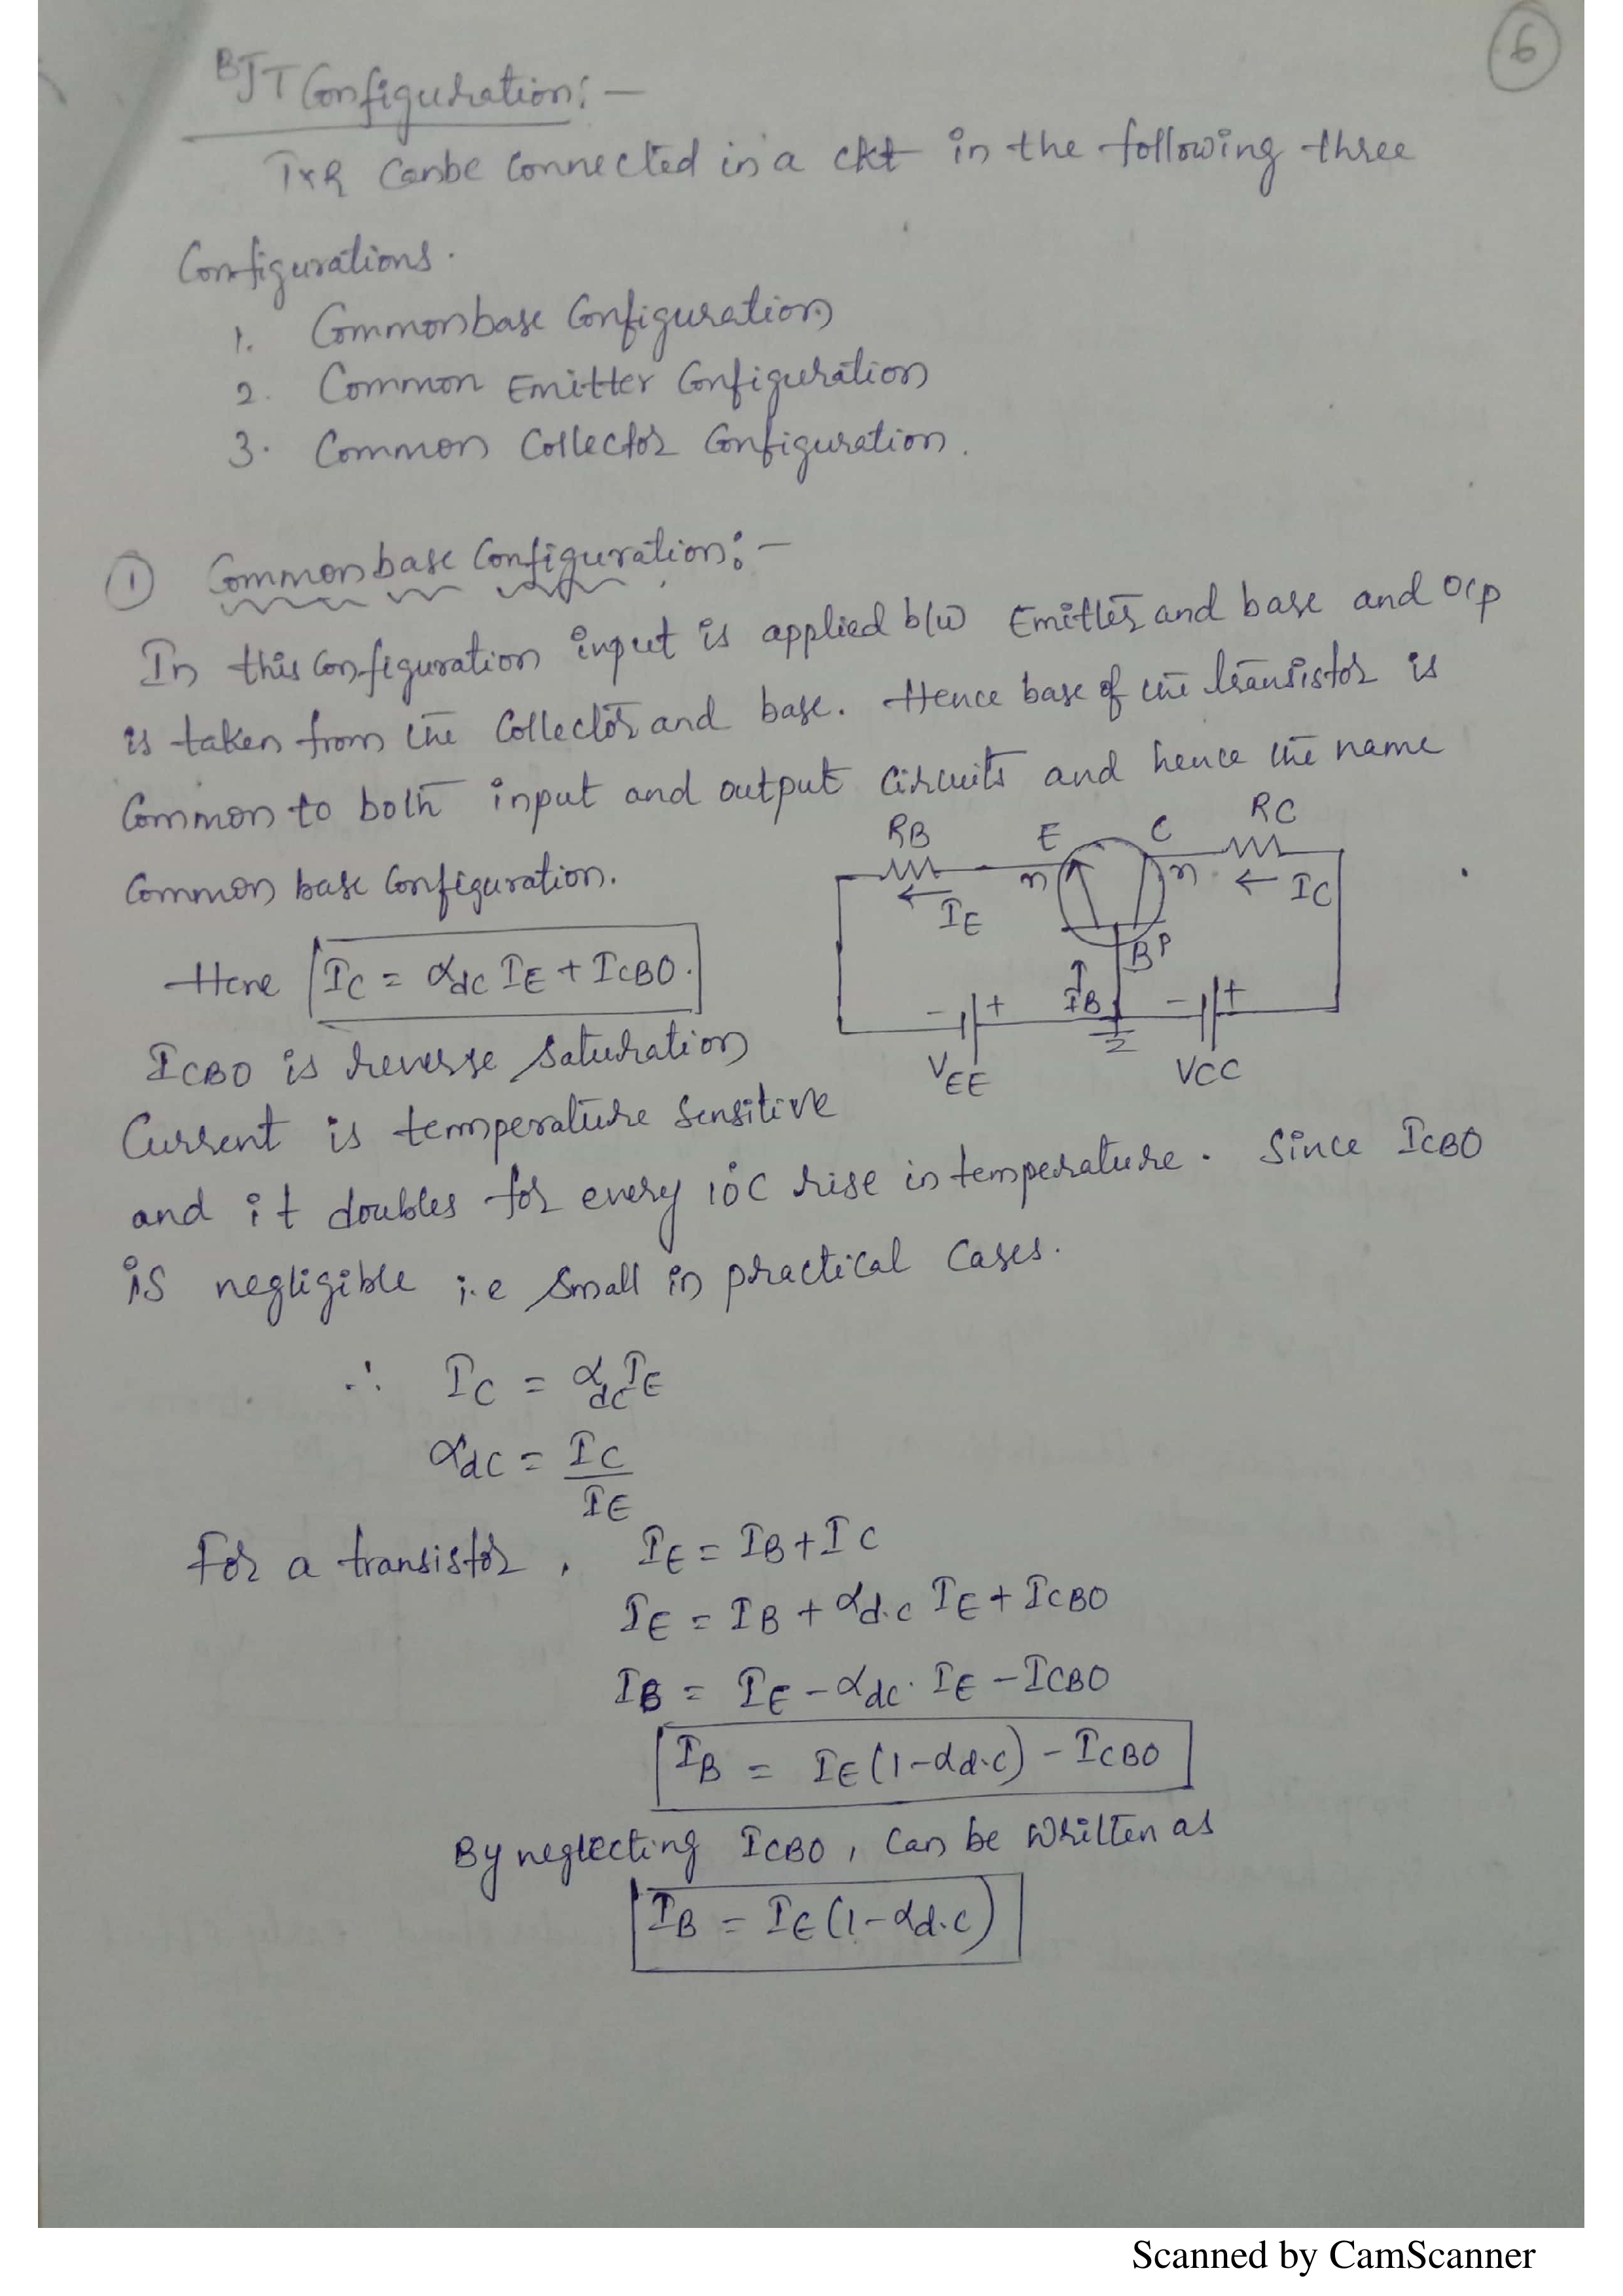 6
BJT Configuration:-
TxR Can be Connected in a ckt in the following three
Configurations.
1. Common base Configuration
2. Common Emitter Configuration
3. Common Collector Configuration.
① Common base Configuration:-
In this Configuration input is applied b/w Emitter and base and o/p
is taken from the Collector and base. Hence base of the transistor is
Common to both input and output Circuits and hence the name
Common base Configuration.
RB E C RC
n n
IE IC
B P
IB
- + - +
VEE VCC
Here IC = αdc IE + ICBO.
ICBO is reverse saturation
Current is temperature sensitive
and it doubles for every 10°C rise in temperature. Since ICBO
is negligible i.e small in practical Cases.
∴ IC = αdc IE
αdc = IC / IE
For a transistor, IE = IB + IC
IE = IB + αd.c IE + ICBO
IB = IE - αdc. IE - ICBO
IB = IE (1-αd.c) - ICBO
By neglecting ICBO, Can be written as
IB = IE (1-αd.c)
Scanned by CamScanner